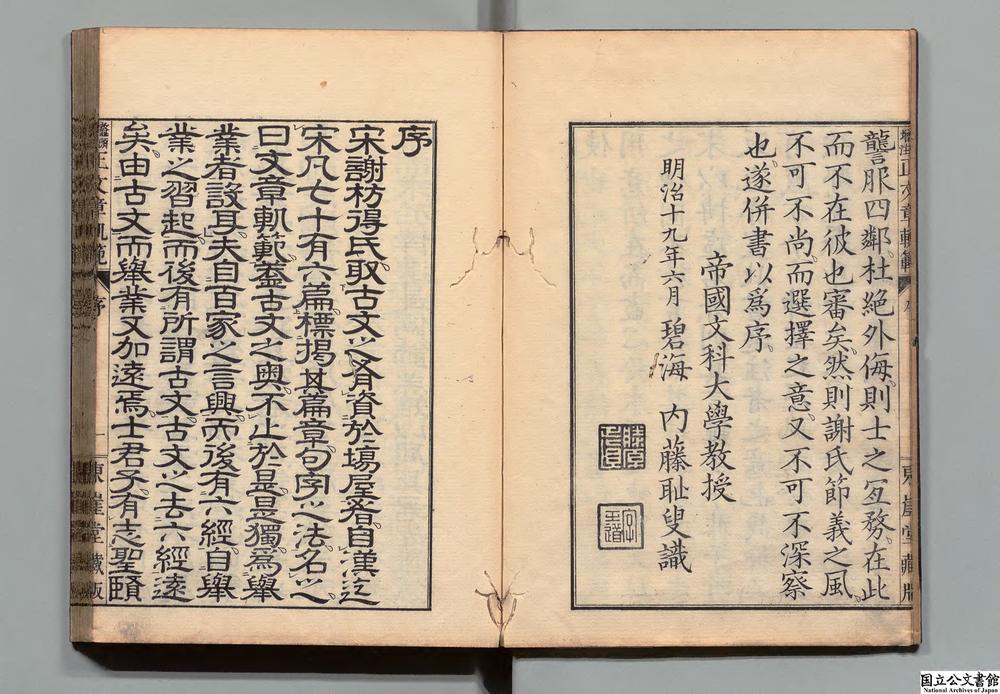 讋服四鄰、杜絕外侮、則士之冝務、在此
而不在彼也審矣、然則謝氏節義之風、
不可不尚、而選擇之意、又不可不深察
也、遂併書以爲序、
帝國文科大學教授
明治十九年六月 碧海 內藤耻叟識
東崖堂藏版
序
宋謝枋得氏、取古文之有資於塲屋者、自漢迄
宋凡七十有六篇、標揭其篇章句字之法、名之
曰文章軌範、蓋古文之奧、不止於是、是獨爲舉
業者設耳、夫自百家之言興、而後有六經、自舉
業之習起、而後有所謂古文、古文之去六經遠
矣、由古文而舉業又加遠焉、士君子有志聖賢
正文章軌範
序
一
東崖堂藏版
国立公文書館
National Archives of Japan